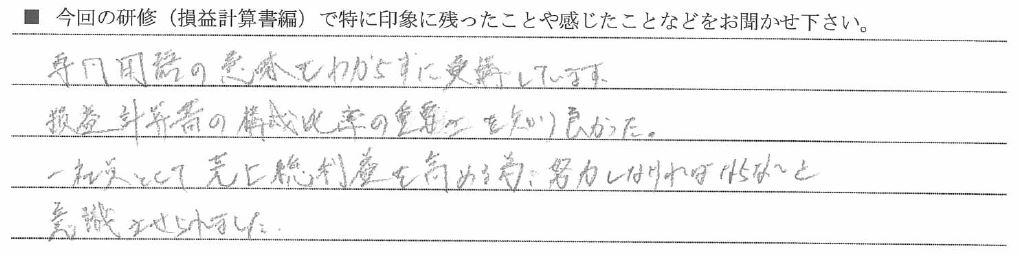 ■ 今回の研修（損益計算書編）で特に印象に残ったことや感じたことなどをお聞かせ下さい。
専門用語の意味もわからずに受講しています。
損益計算書の構成比率の重要性を知り良かった。
一社員として売上総利益を高める為に努力しなければならないと
意識させられました。